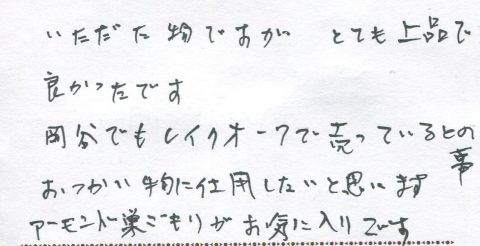 いただた物ですが とても上品で
良かったです
岡谷でもレイクオークで売っているとの事
おつかい物に仕用したいと思います
アーモンド巣ごもりがお気に入りです